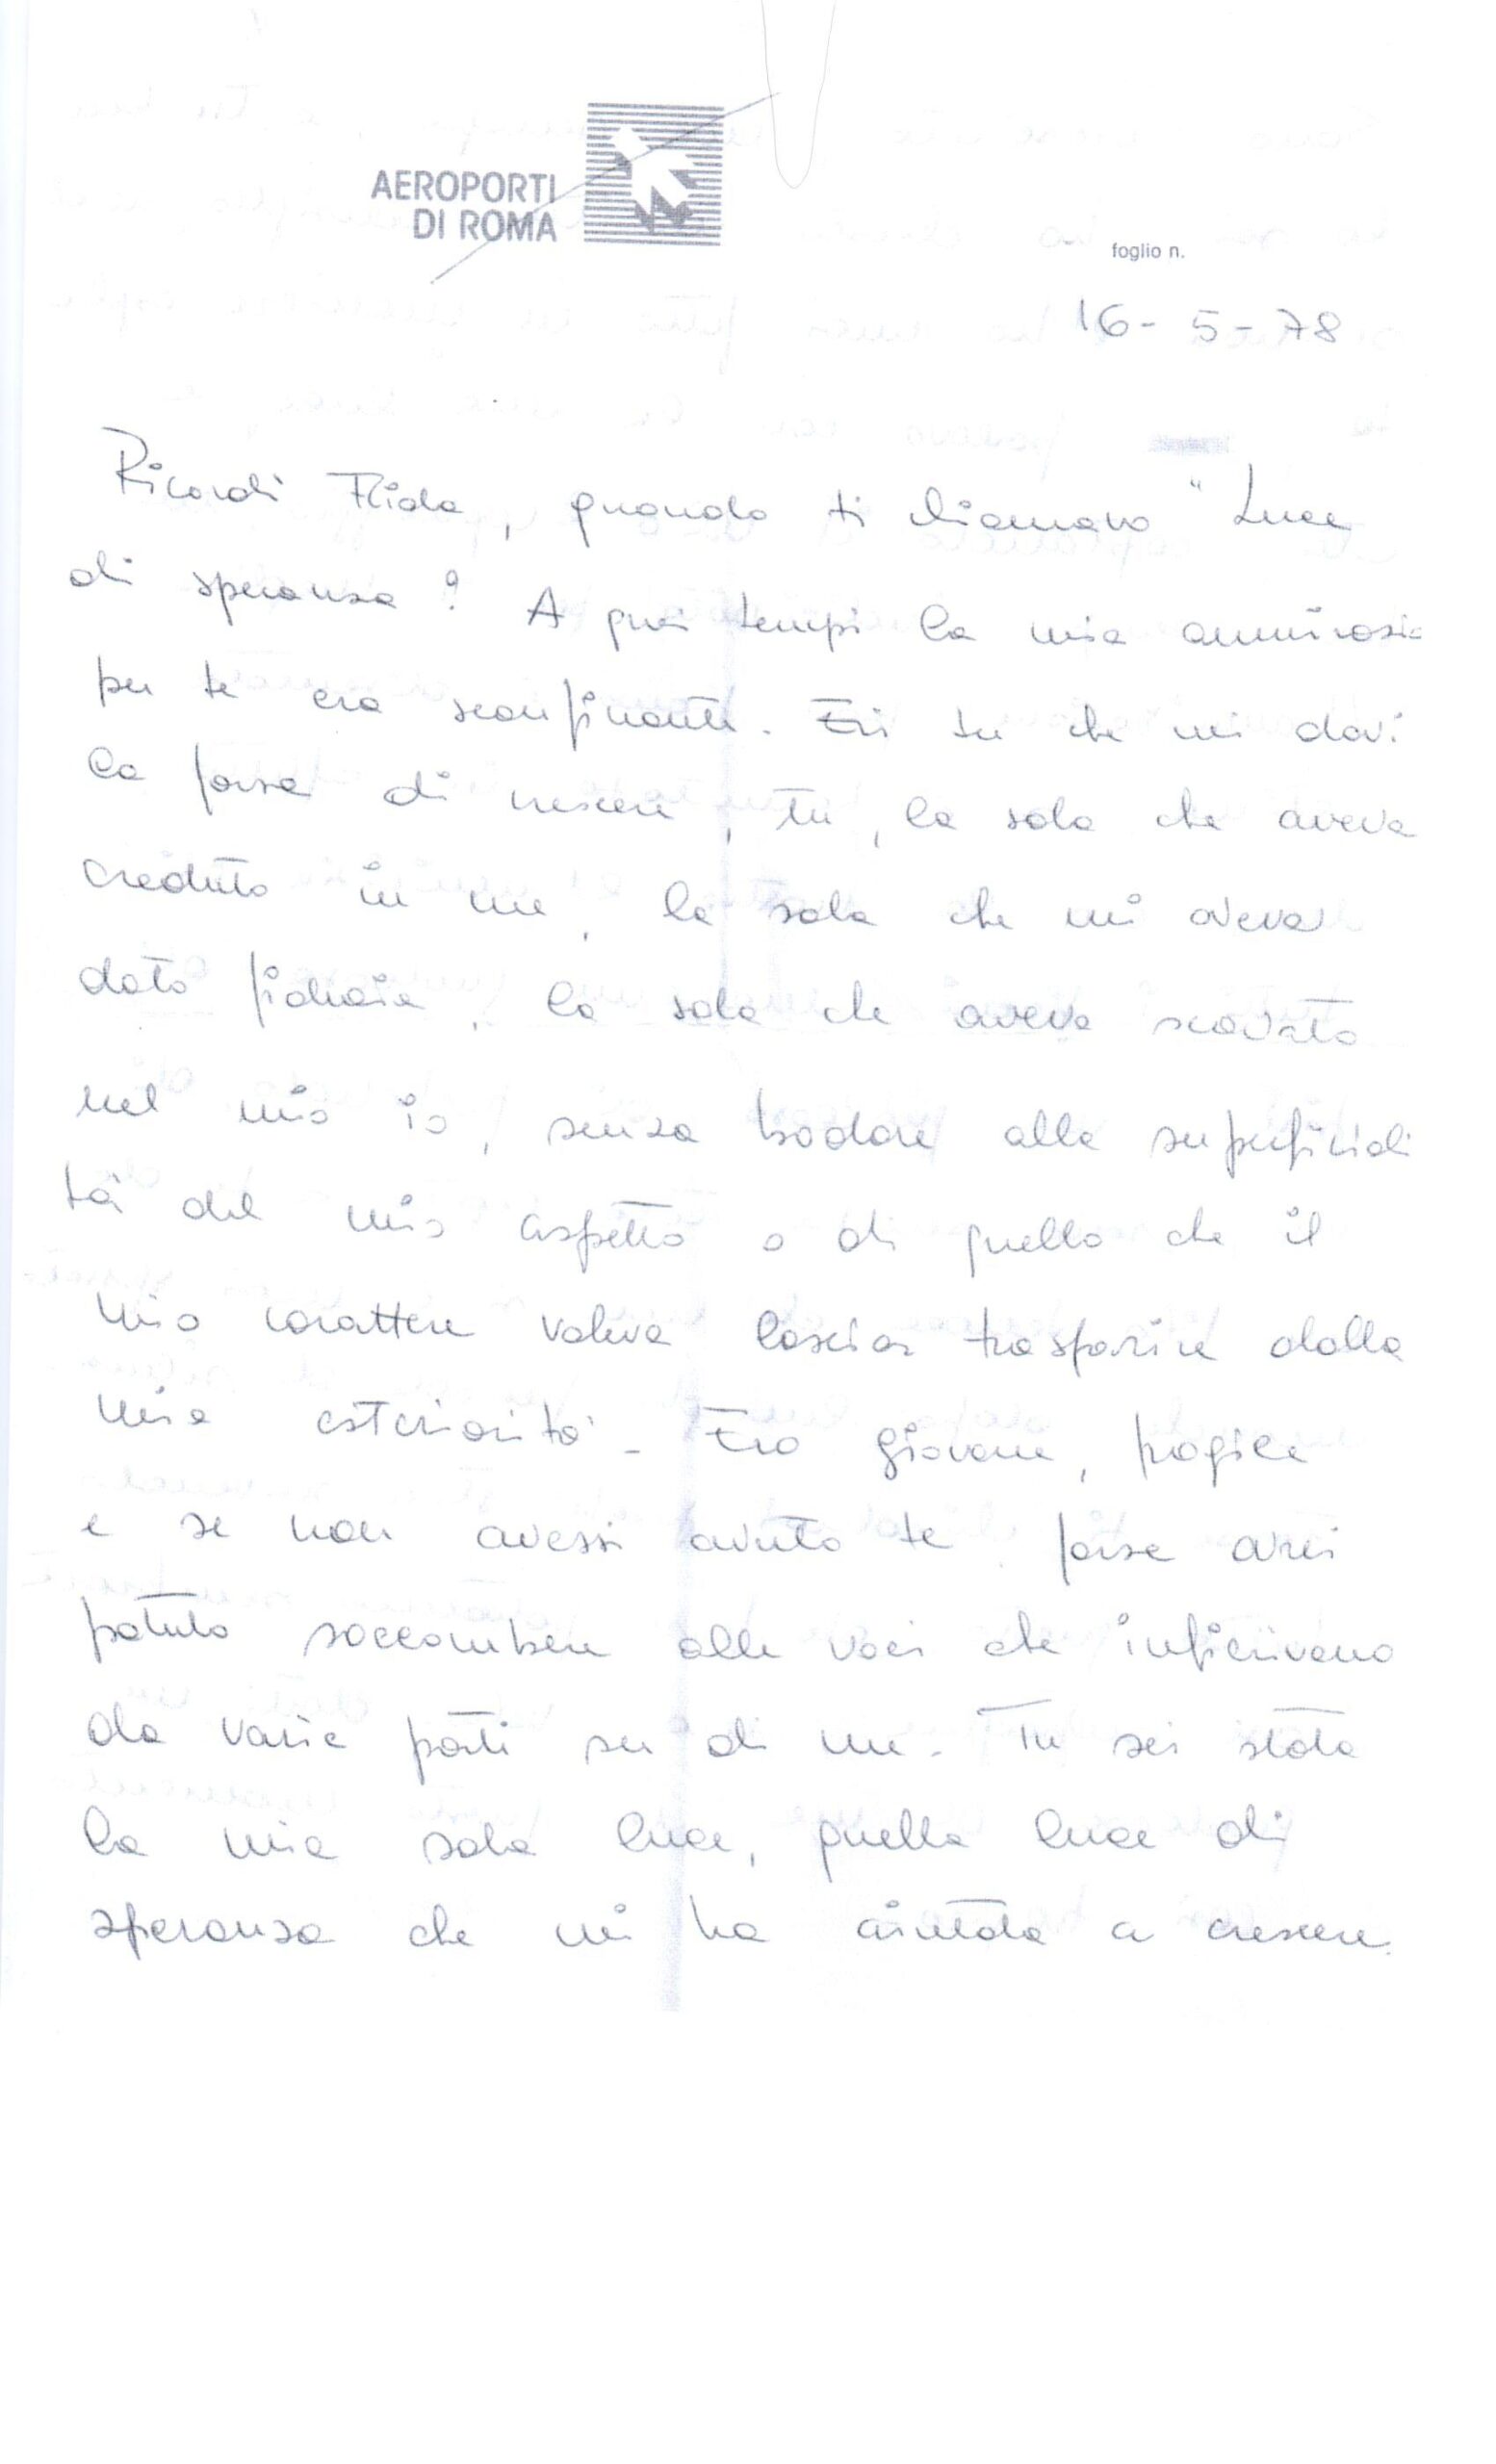 AEROPORTI
DI ROMA
foglio n.
16 - 5 - 78
Ricordi Elida, quando ti chiamavo "Luce
di speranza? A quei tempi la mia ammirazio
per te era sconfinante. Eri tu che mi davi
la forza di crescere, tu, la sola che aveva
creduto in me, la sola che mi aveva
dato fiducia, la sola che aveva scavato
nel mio io, senza badare alla superficiali
tà del mio aspetto o di quello che il
mio carattere voleva lasciar trasparire dalla
mia esteriorità - Ero giovane, fragile
e se non avessi avuto te forse avrei
potuto soccombere alle voci che infierivano
da varie parti su di me. Tu sei stata
la mia sola luce, quella luce di
speranza che mi ha aiutata a crescere.